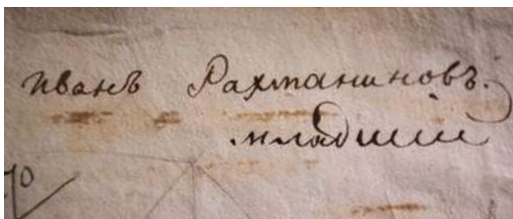 Иванъ Рахманиновъ.
младшій
70